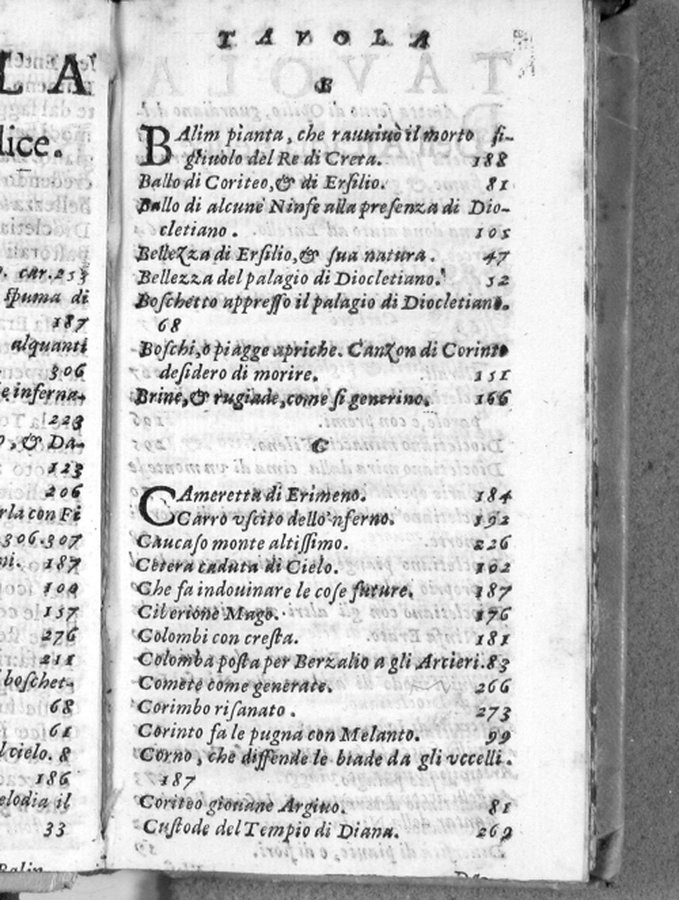 LA
lice.
. car.253
spuma di
187
alquanti
306
e inferna-
223
o, & Da-
123
206
rla con Fi
306.307
ni. 187
100
157
276
211
boschet-
68
61
l cielo. 8
186
elodia il
33
Balin
TAVOLA
B
BAlim pianta, che rauuiuò il morto fi-
gliuolo del Re di Creta. 188
Ballo di Coriteo, & di Ersilio. 81
Ballo di alcune Ninfe alla presenza di Dio-
cletiano. 105
Bellezza di Ersilio, & sua natura. 47
Bellezza del palagio di Diocletiano. 52
Boschetto appresso il palagio di Diocletiano.
68
Boschi, o piagge apriche. Canzon di Corinto
desidero di morire. 151
Brine, & rugiade, come si generino. 166
C
CAmeretta di Erimeno. 184
Carro vscito dello'nferno. 192
Caucaso monte altissimo. 226
Cetera caduta di Cielo. 102
Che fa indouinare le cose future. 187
Ciberione Mago. 176
Colombi con cresta. 181
Colomba posta per Berzalio a gli Arcieri. 83
Comete come generate. 266
Corimbo risanato. 273
Corinto fa le pugna con Melanto. 99
Corno, che diffende le biade da gli vccelli.
187
Coriteo giouane Argiuo. 81
Custode del Tempio di Diana. 269